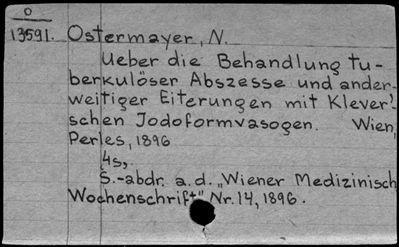 O
13591. Ostermayer, N.
Ueber die Behandlung tu-
berkulöser Abszesse und ander-
weitiger Eiterungen mit Klever'-
schen Jodoformvasogen. Wien,
Perles, 1896
4s,
S.-abdr. a. d. „Wiener Medizinisch
Wochenschrift" Nr. 14, 1896.